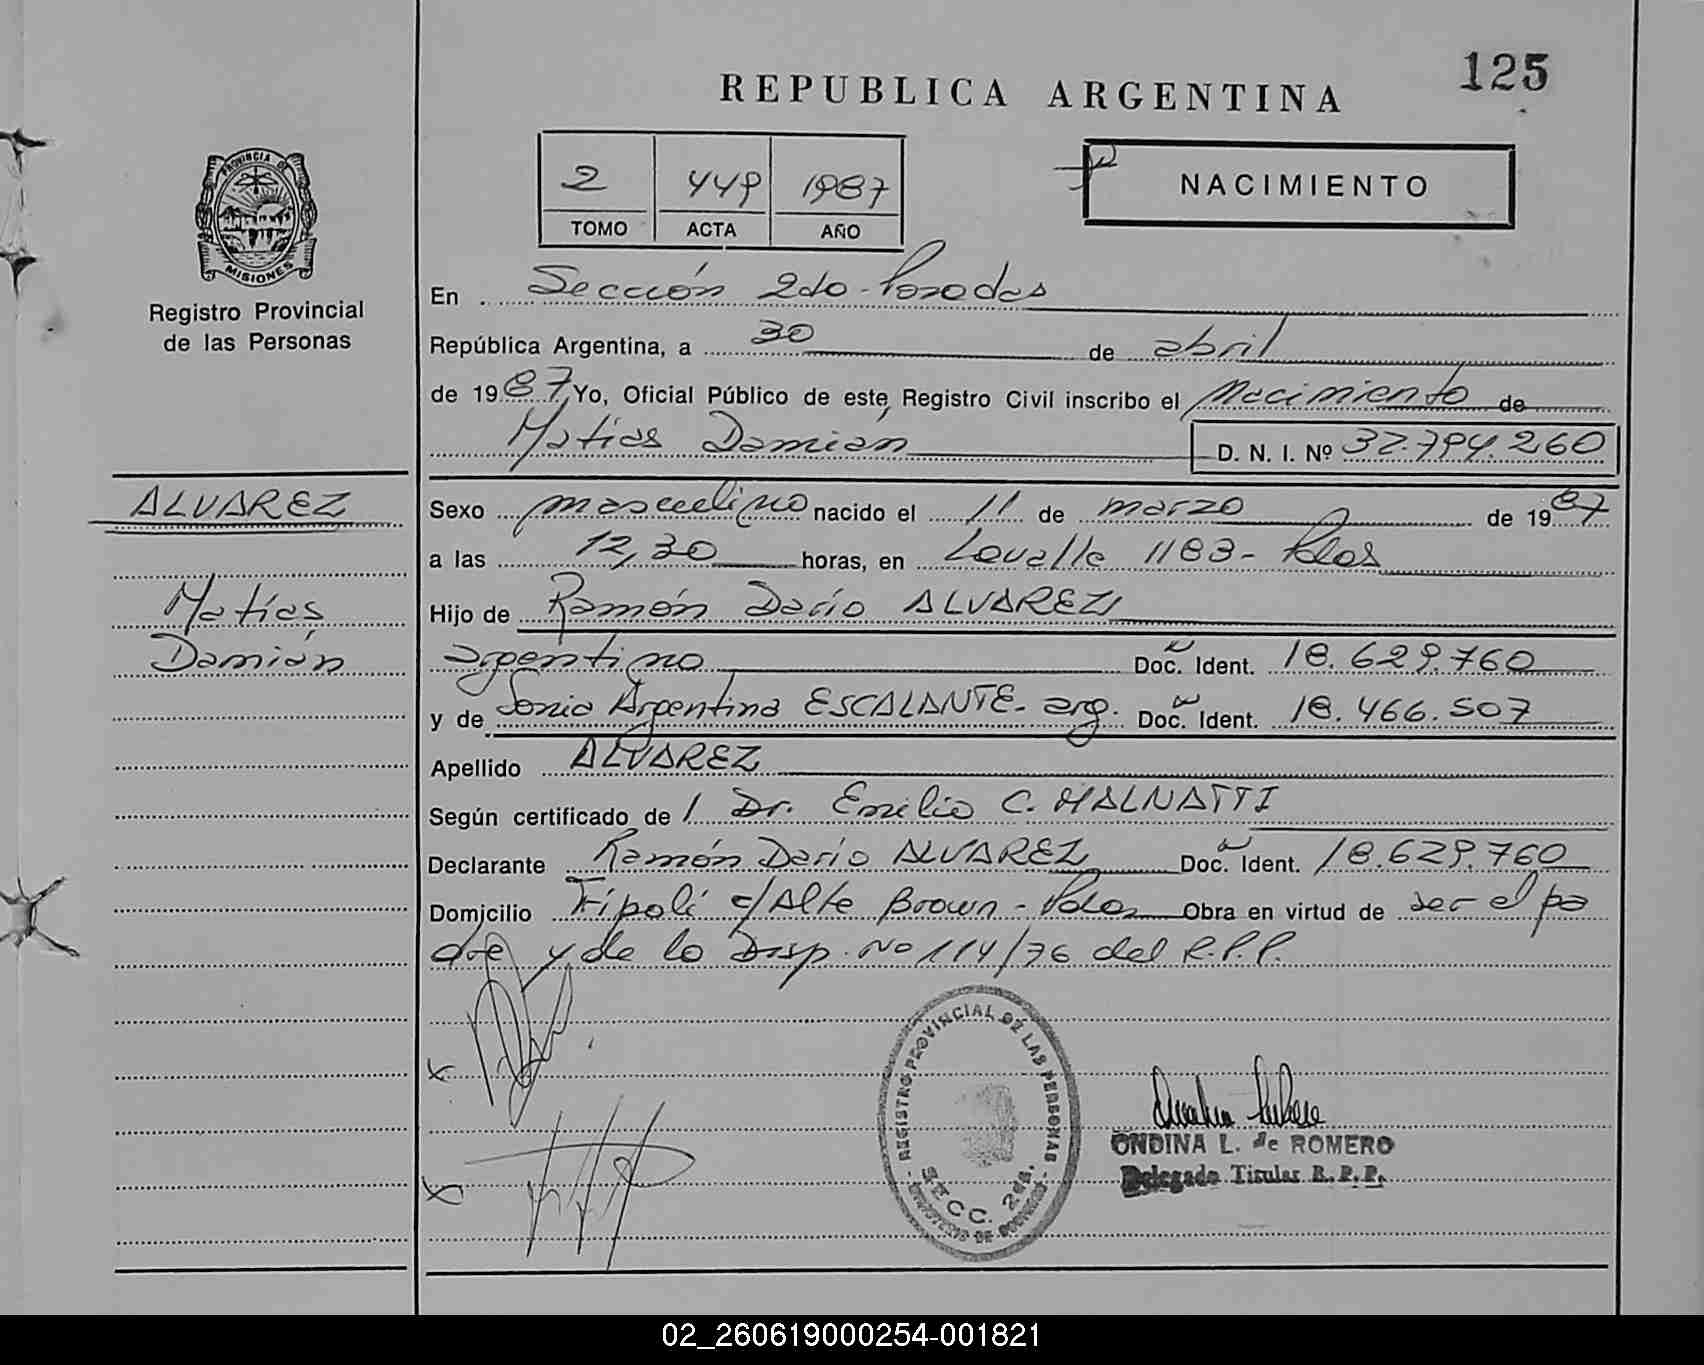 125
REPUBLICA ARGENTINA
PROVINCIA DE
MISIONES
Registro Provincial
de las Personas
2 449 1987
TOMO ACTA AÑO
NACIMIENTO
En Sección 2da - Posadas
República Argentina, a 30 de abril
de 1987 Yo, Oficial Público de este Registro Civil inscribo el Nacimiento de
Matías Damián D. N. I. Nº 32.794.260
ALVAREZ
Matías
Damián
Sexo masculino nacido el 11 de marzo de 1987
a las 12,30 horas, en Lavalle 1183 - Pdas
Hijo de Ramón Darío ALVAREZ,
argentino Doc. Ident. 18.629.760
y de Sonia Argentina ESCALANTE - arg. Doc. Ident. 18.466.507
Apellido ALVAREZ
Según certificado de / Dr. Emilio C. MALNATTI
Declarante Ramón Darío ALVAREZ Doc. Ident. 18.629.760
Domicilio Trípoli c/ Alte Brown - Pdas Obra en virtud de ser el pa
dre y de la Disp. Nº 114/76 del R.P.P.
REGISTRO PROVINCIAL DE LAS PERSONAS
SECC. 2da.
ONDINA L. de ROMERO
Delegado Titular R. P. P.
02_260619000254-001821